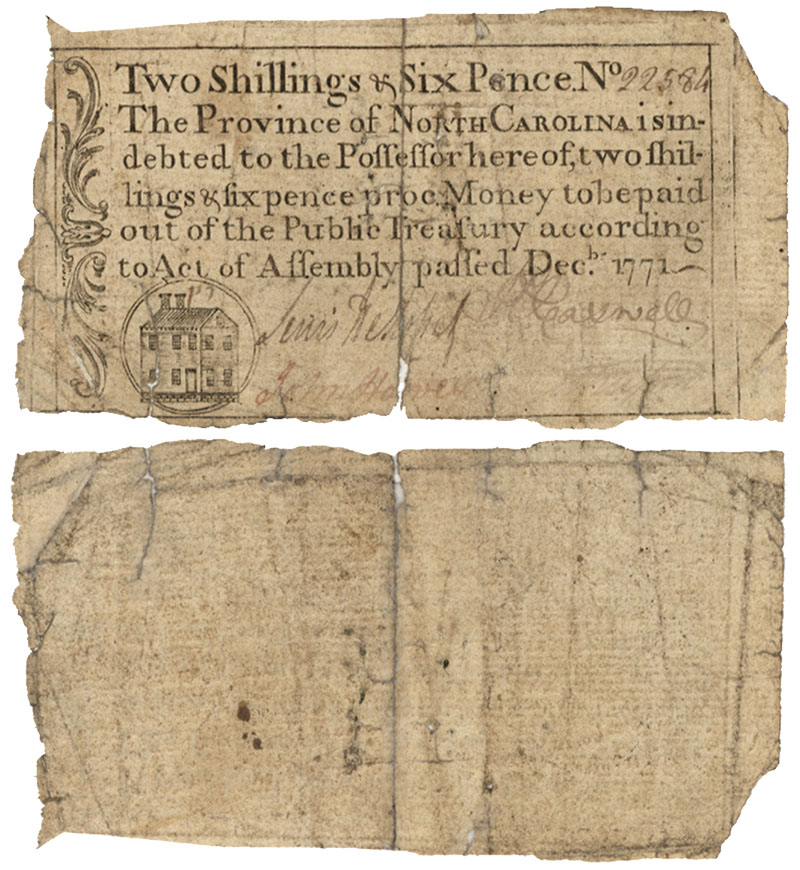 Two Shillings & Six Pence. No. 22584
The Province of NORTH CAROLINA is in-
debted to the Poſſeſſor hereof, two ſhil-
lings & ſix pence proc. Money to be paid
out of the Public Treaſury according
to Act of Aſſembly paſſed Decbr. 1771—
Lewis De Roſset
R Caswell
John Harvey